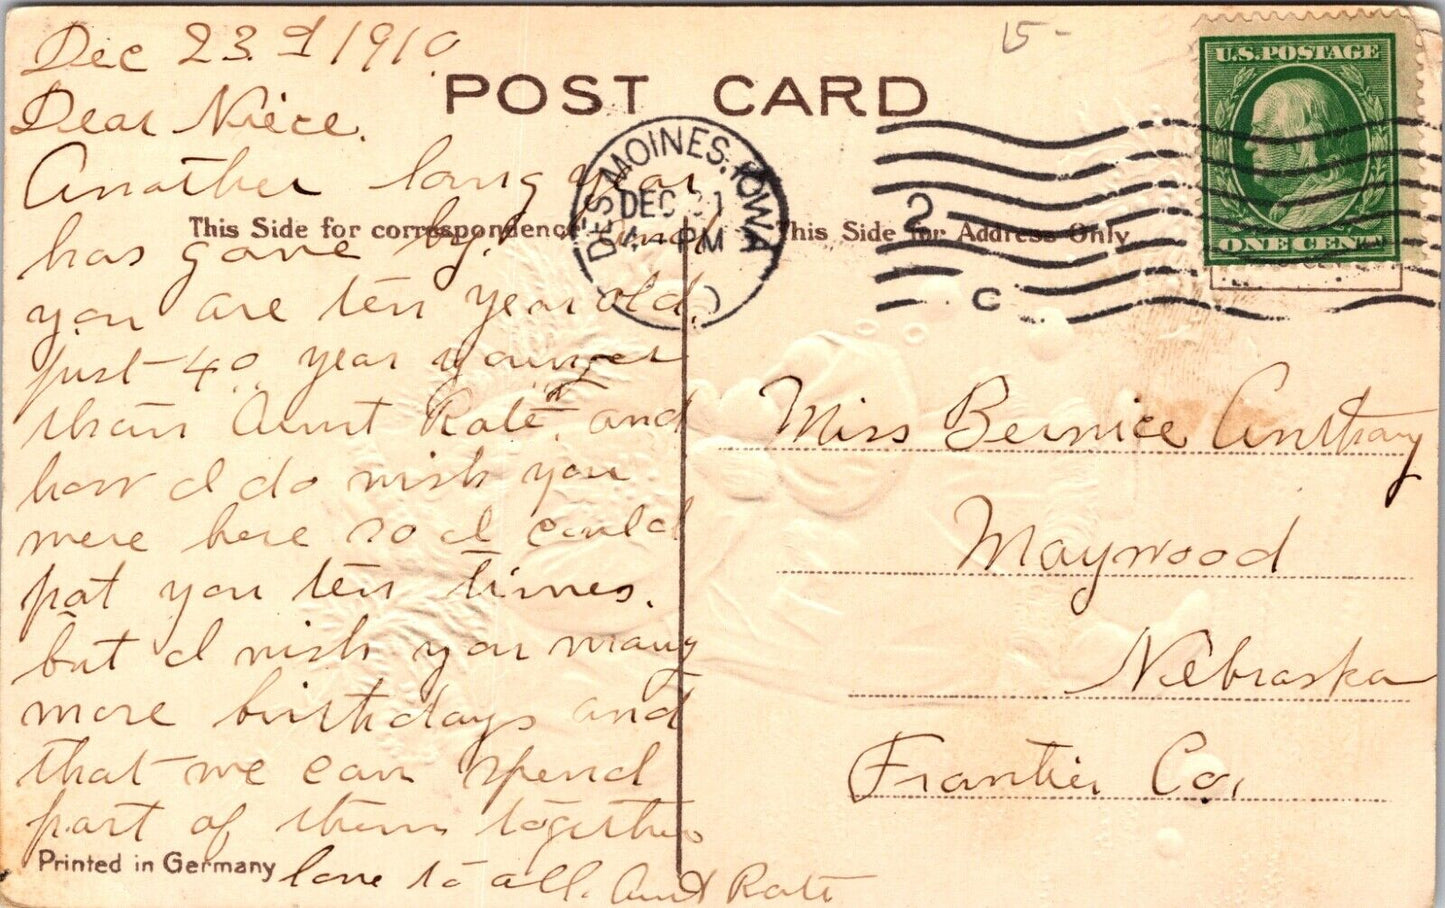 Dec 23d 1910
15-
POST CARD
U.S. POSTAGE
ONE CENT
DES MOINES, IOWA
DEC 21
4 PM
2
C
This Side for correspondence
This Side for Address Only
Dear Niece.
Another long year
has gone by. and
you are ten year old.
just 40 year younger
than Aunt Kate, and
how I do wish you
were here so I could
pat you ten times.
but I wish you many
more birthdays and
that we can spend
part of them together
love to all. Aunt Kate
Miss Bernice Anthony
Maywood
Nebraska
Frontier Co.
Printed in Germany